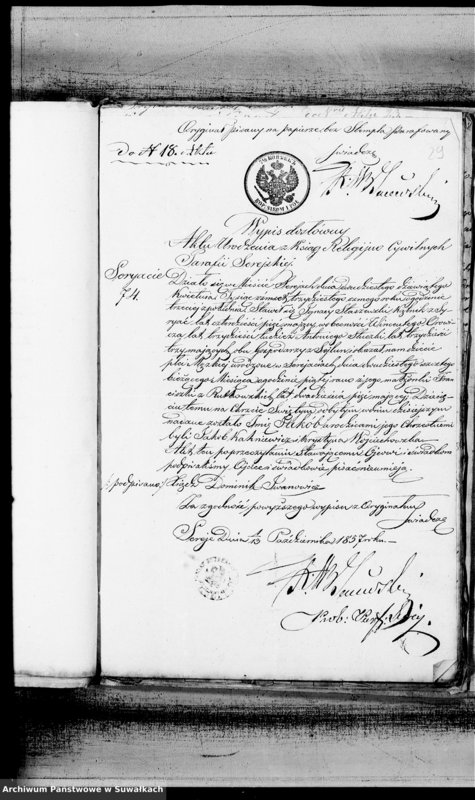 Oryginał pisany na papierze bez Stempla parafowany
Do N 18 świadczę
29
Wypis dosłówny
Aktu Urodzenia z Ksiąg Religijno Cywilnych
Parafii Serejskiej
Seryacie
74.
Działo się w Mieście Serejach dnia dwudziestego
Kwietnia Tysiąc ósmset trzydziestego ósmego roku o godzinie
trzeciej z południa Stawił się Ignacy
lat czterdzieści pięć mający w obecności Wincentego
lat trzydzieści tudzież Antoniego lat trzydzieści
trzy mających, obu Gospodarzy z i okazał nam dziecie
płci Męzkiej urodzone w Serejach dnia dwudziestego
bieżącego Miesiąca o godzinie piątej rano z jego małżonki Fran
ciszki z Rutkowskich lat dwadzieścia pięć mającej Dziecię
ciu temu na Chrzcie Świętym odbytym w dniu dzisiejszym
nadane zostało Imię Jakób a rodzicami jego Chrzestnemi
byli Jakób i Krystyna Wojciechowska
Akt ten po przeczytaniu Stawającemu Ojcowi i świadkom
podpisaliśmy Ojciec i świadkowie pisać nie umieją.
podpisano: Xiądz Dominik Iwanowicz
Za zgodność powyższego wypisu z Oryginałem
świadczę
Sereje Dnia 1/13 Października 1857 roku
Prob: Paraf: Serej.
Archiwum Państwowe w Suwałkach